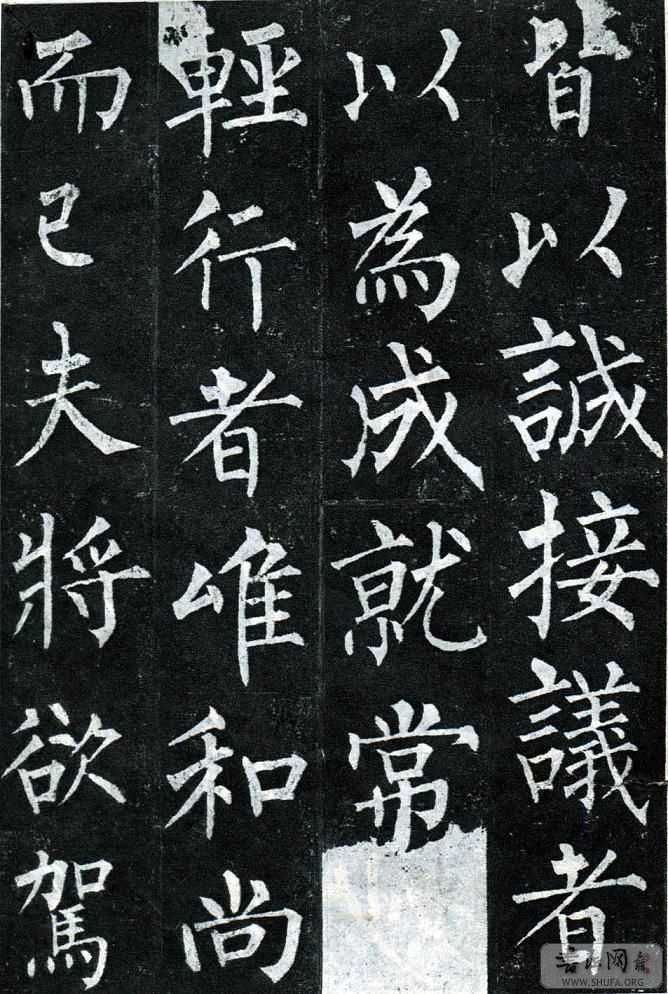 皆以誠接議者
以為成就常
輕行者唯和尚
而已夫將欲駕
WWW.SHUFA.ORG